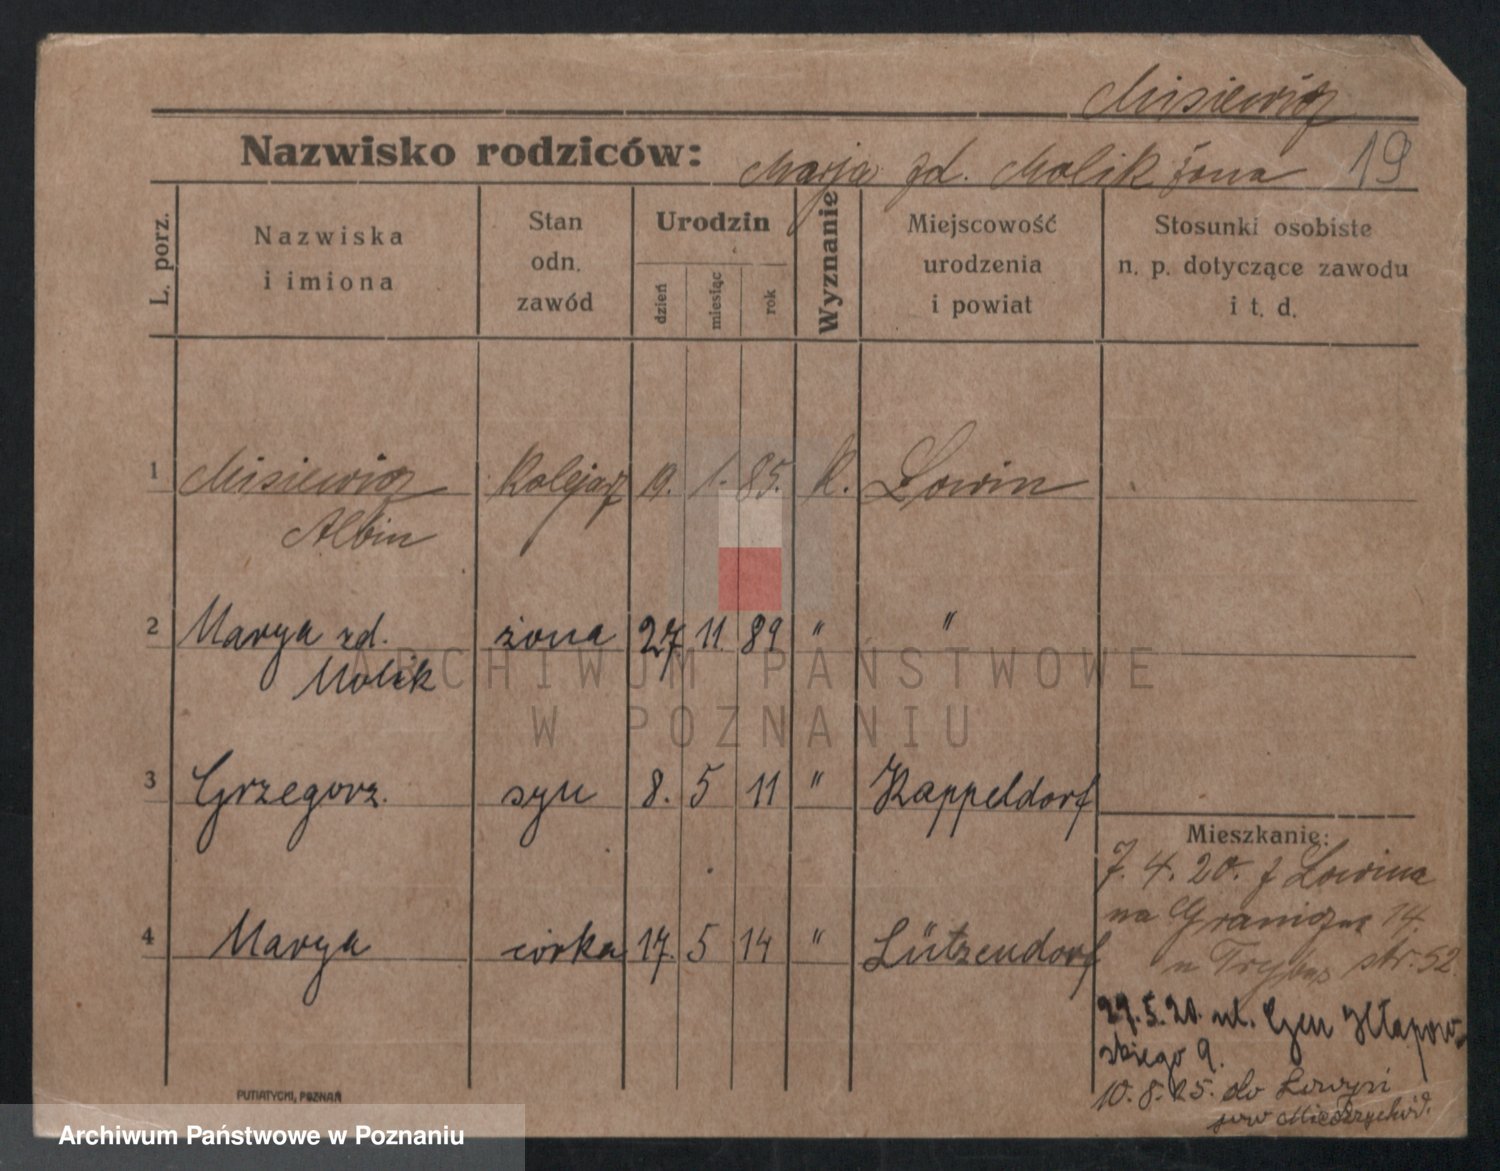 Misiewicz
Nazwisko rodziców: Marja zd. Molik żona 19
L. porz. Nazwiska i imiona Stan odn. zawód Urodzin dzień miesiąc rok Wyznanie Miejscowość urodzenia i powiat Stosunki osobiste n. p. dotyczące zawodu i t. d.
1 Misiewicz Kolejarz 19. 1. 85. K. Lowin
Albin
2 Marya zd. żona 27. 11. 89 " "
Molik
3 Grzegorz. syn 8. 5 11 " Kappeldorf
Mieszkanie:
7. 4. 20. z Lowina
na Graniczna 14.
4 Marya córka 17. 5 14 " Lützendorf
u str. 52.
29. 5. 20. ul. Gen Chłapow-
skiego 9.
10. 8. 25. do Lowyń
pow Międzychód.
PUTIATYCKI, POZNAŃ
ARCHIWUM PAŃSTWOWE
W POZNANIU
Archiwum Państwowe w Poznaniu